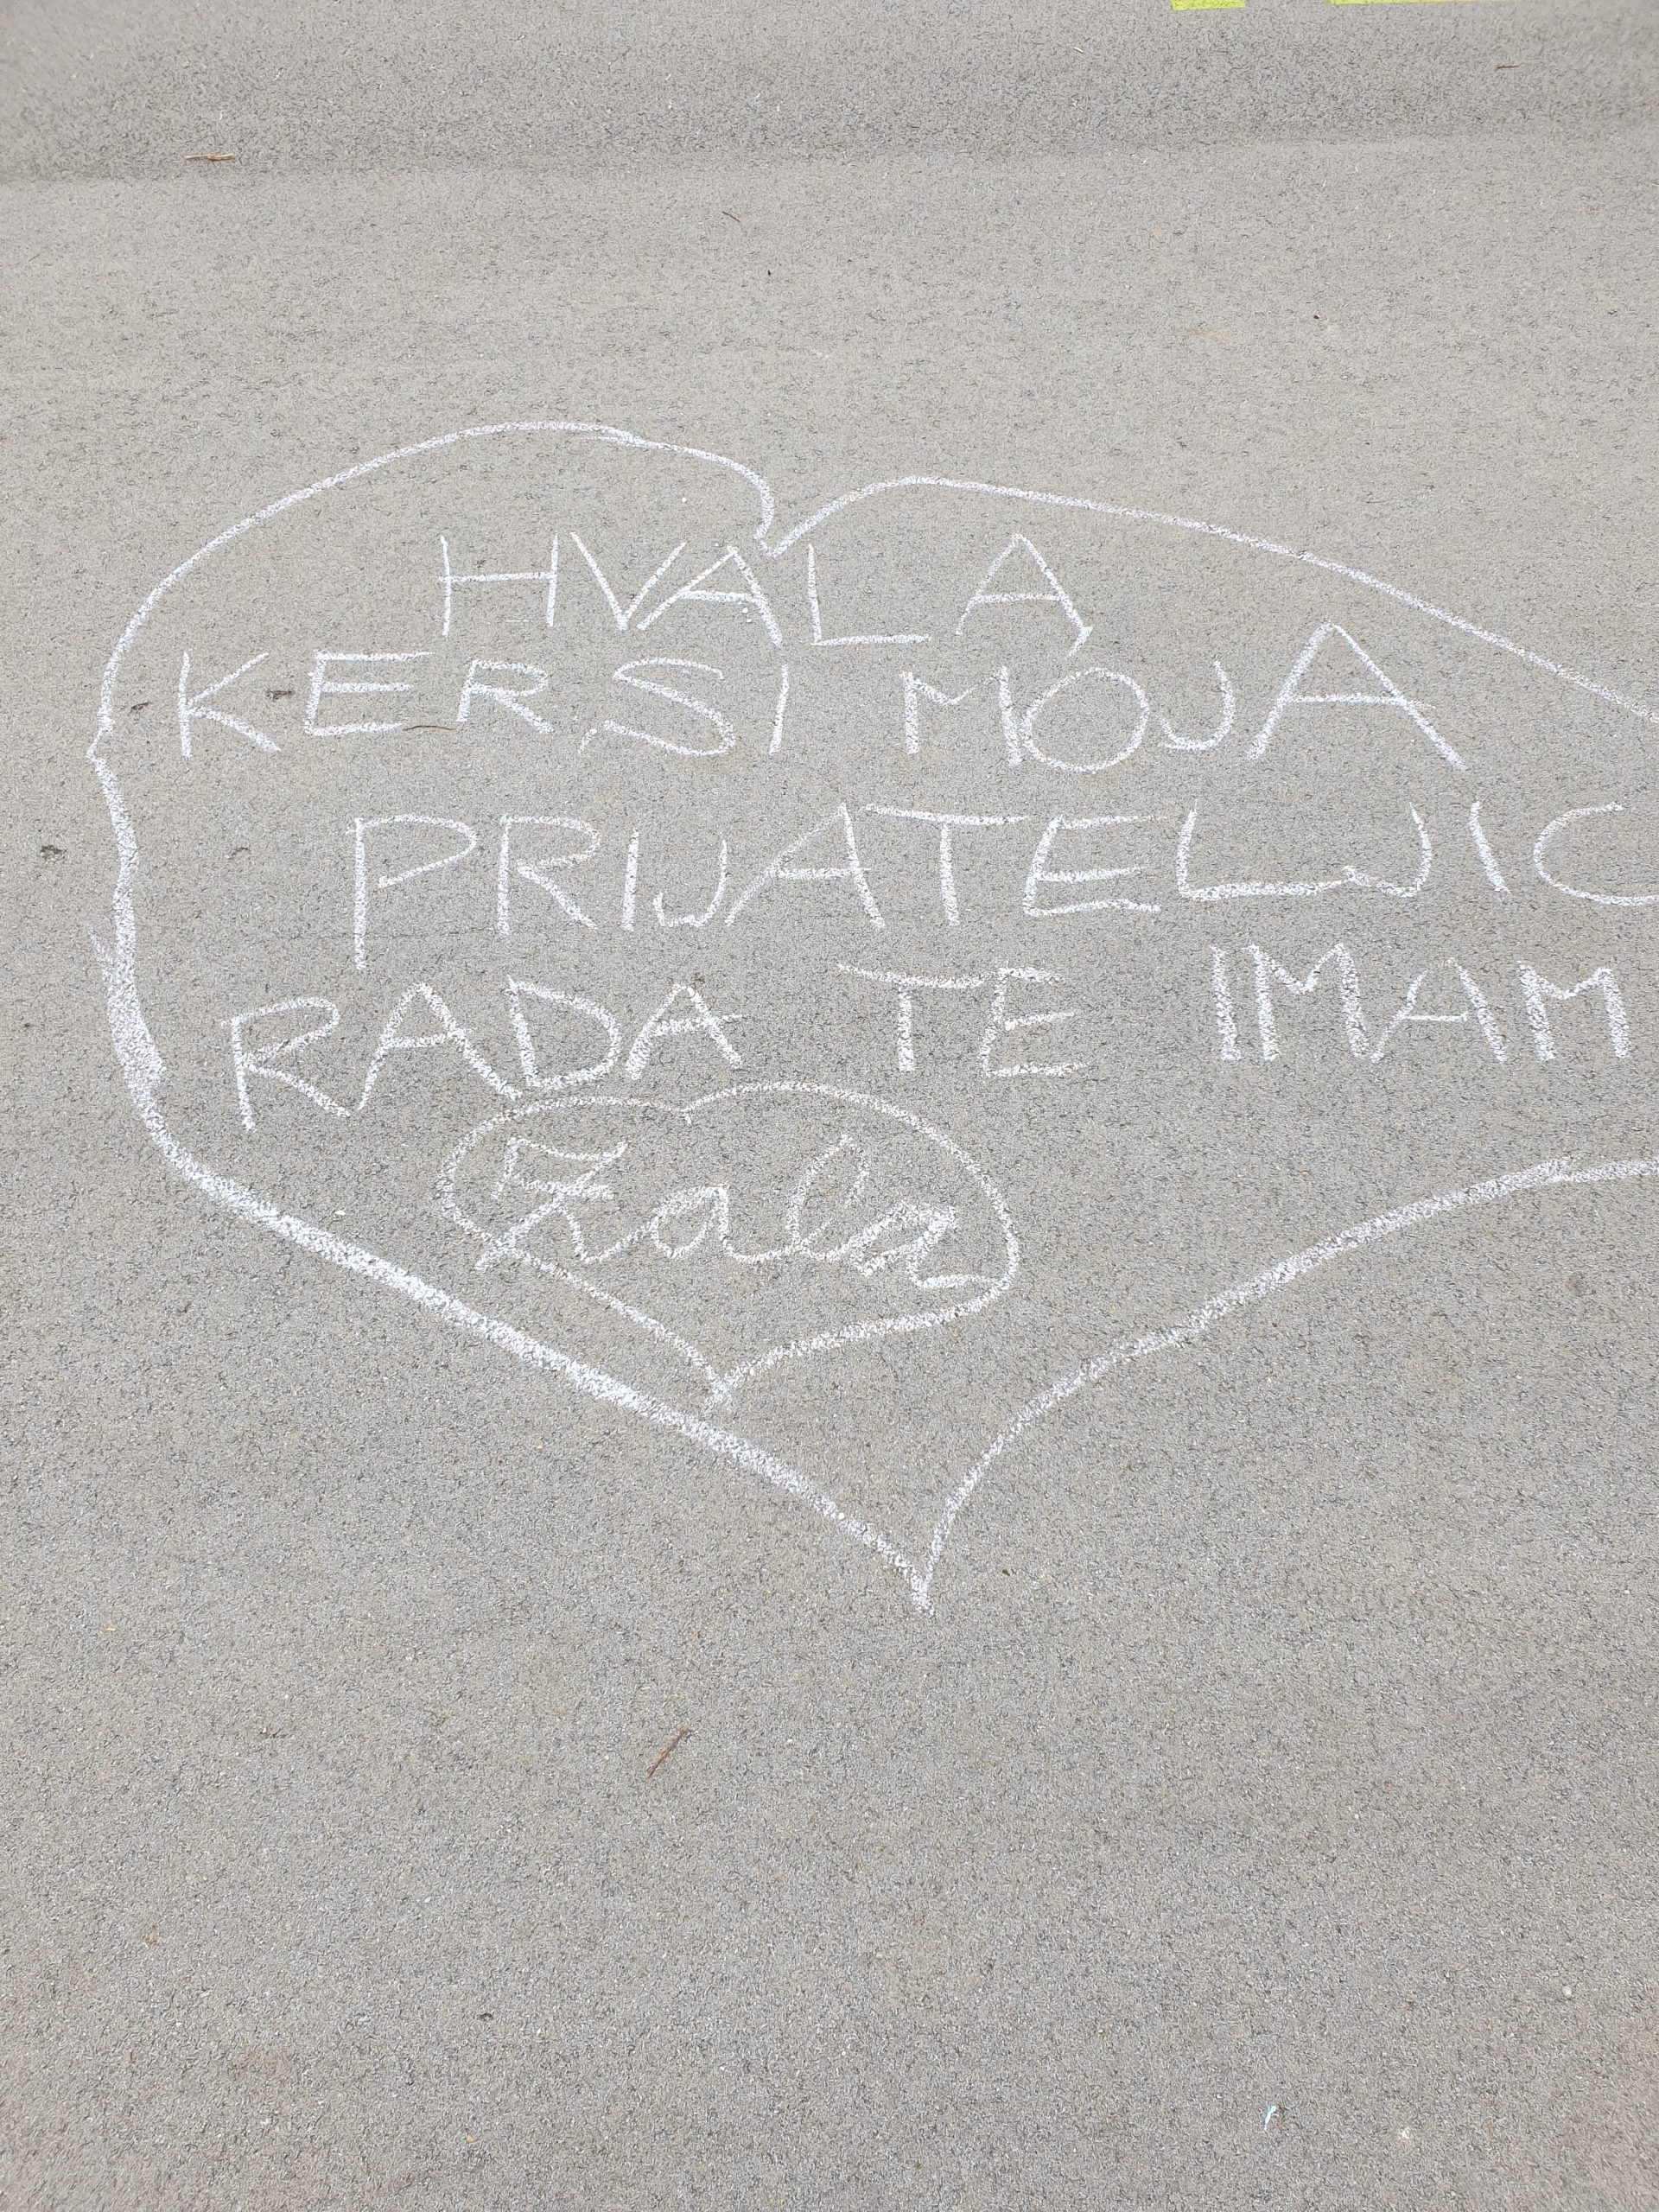 HVALA
KERSI MOJA
PRIJATELJIC
RADA TE IMAM
Zala